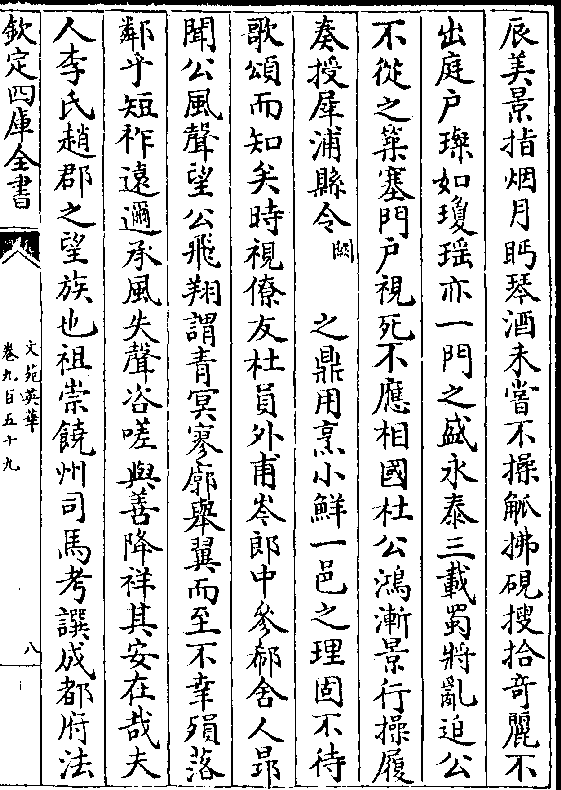 辰美景指烟月眄琴酒未嘗不操觚拂硯搜抬奇麗不
出庭戸璨如瓊瑶亦一門之盛永泰三載蜀將亂迫公
不從之築塞門戸視死不應相國杜公鴻漸景行操履
奏授犀浦縣令闕之鼎用烹小鮮一邑之理固不待
歌頌而知矣時視僚友杜員外甫岑郎中參郗舍人昻
聞公風聲望公飛翔謂青冥寥廓舉翼而至不幸殞落
鄰乎短祚遠邇承風失聲咨嗟與善降祥其安在哉夫
人李氏趙郡之望族也祖崇饒州司馬考譔成都府法
欽定四庫全書
文苑英華
卷九百五十九
八